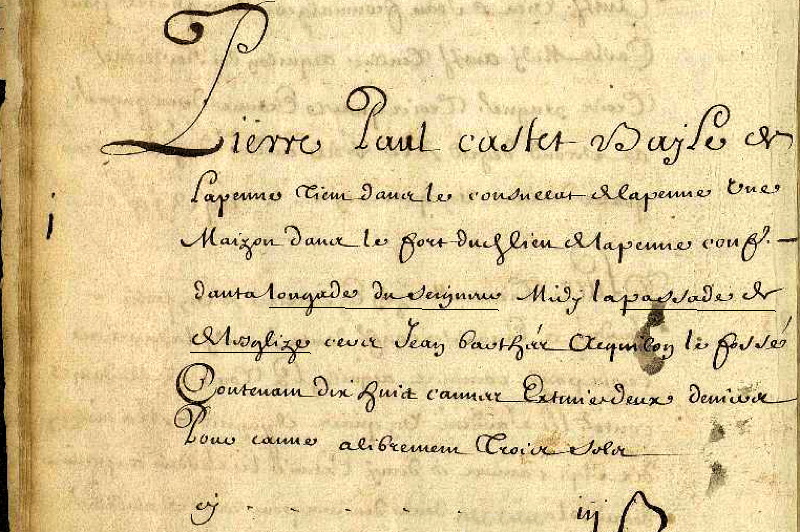 Pierre Paul castet Bayle de
Lapenne tient dans le consullat de lapenne Une
Maizon dans le fort du dit lieu de lapenne conf.t
dauta longade du seigneur Midy la passade de
de l'esglize cers Jean barthar Aequilon le fossé
Contenant dix huit cannes Estimé deux deniers
Pour canne alibrement Trois sols
cy iij s
i